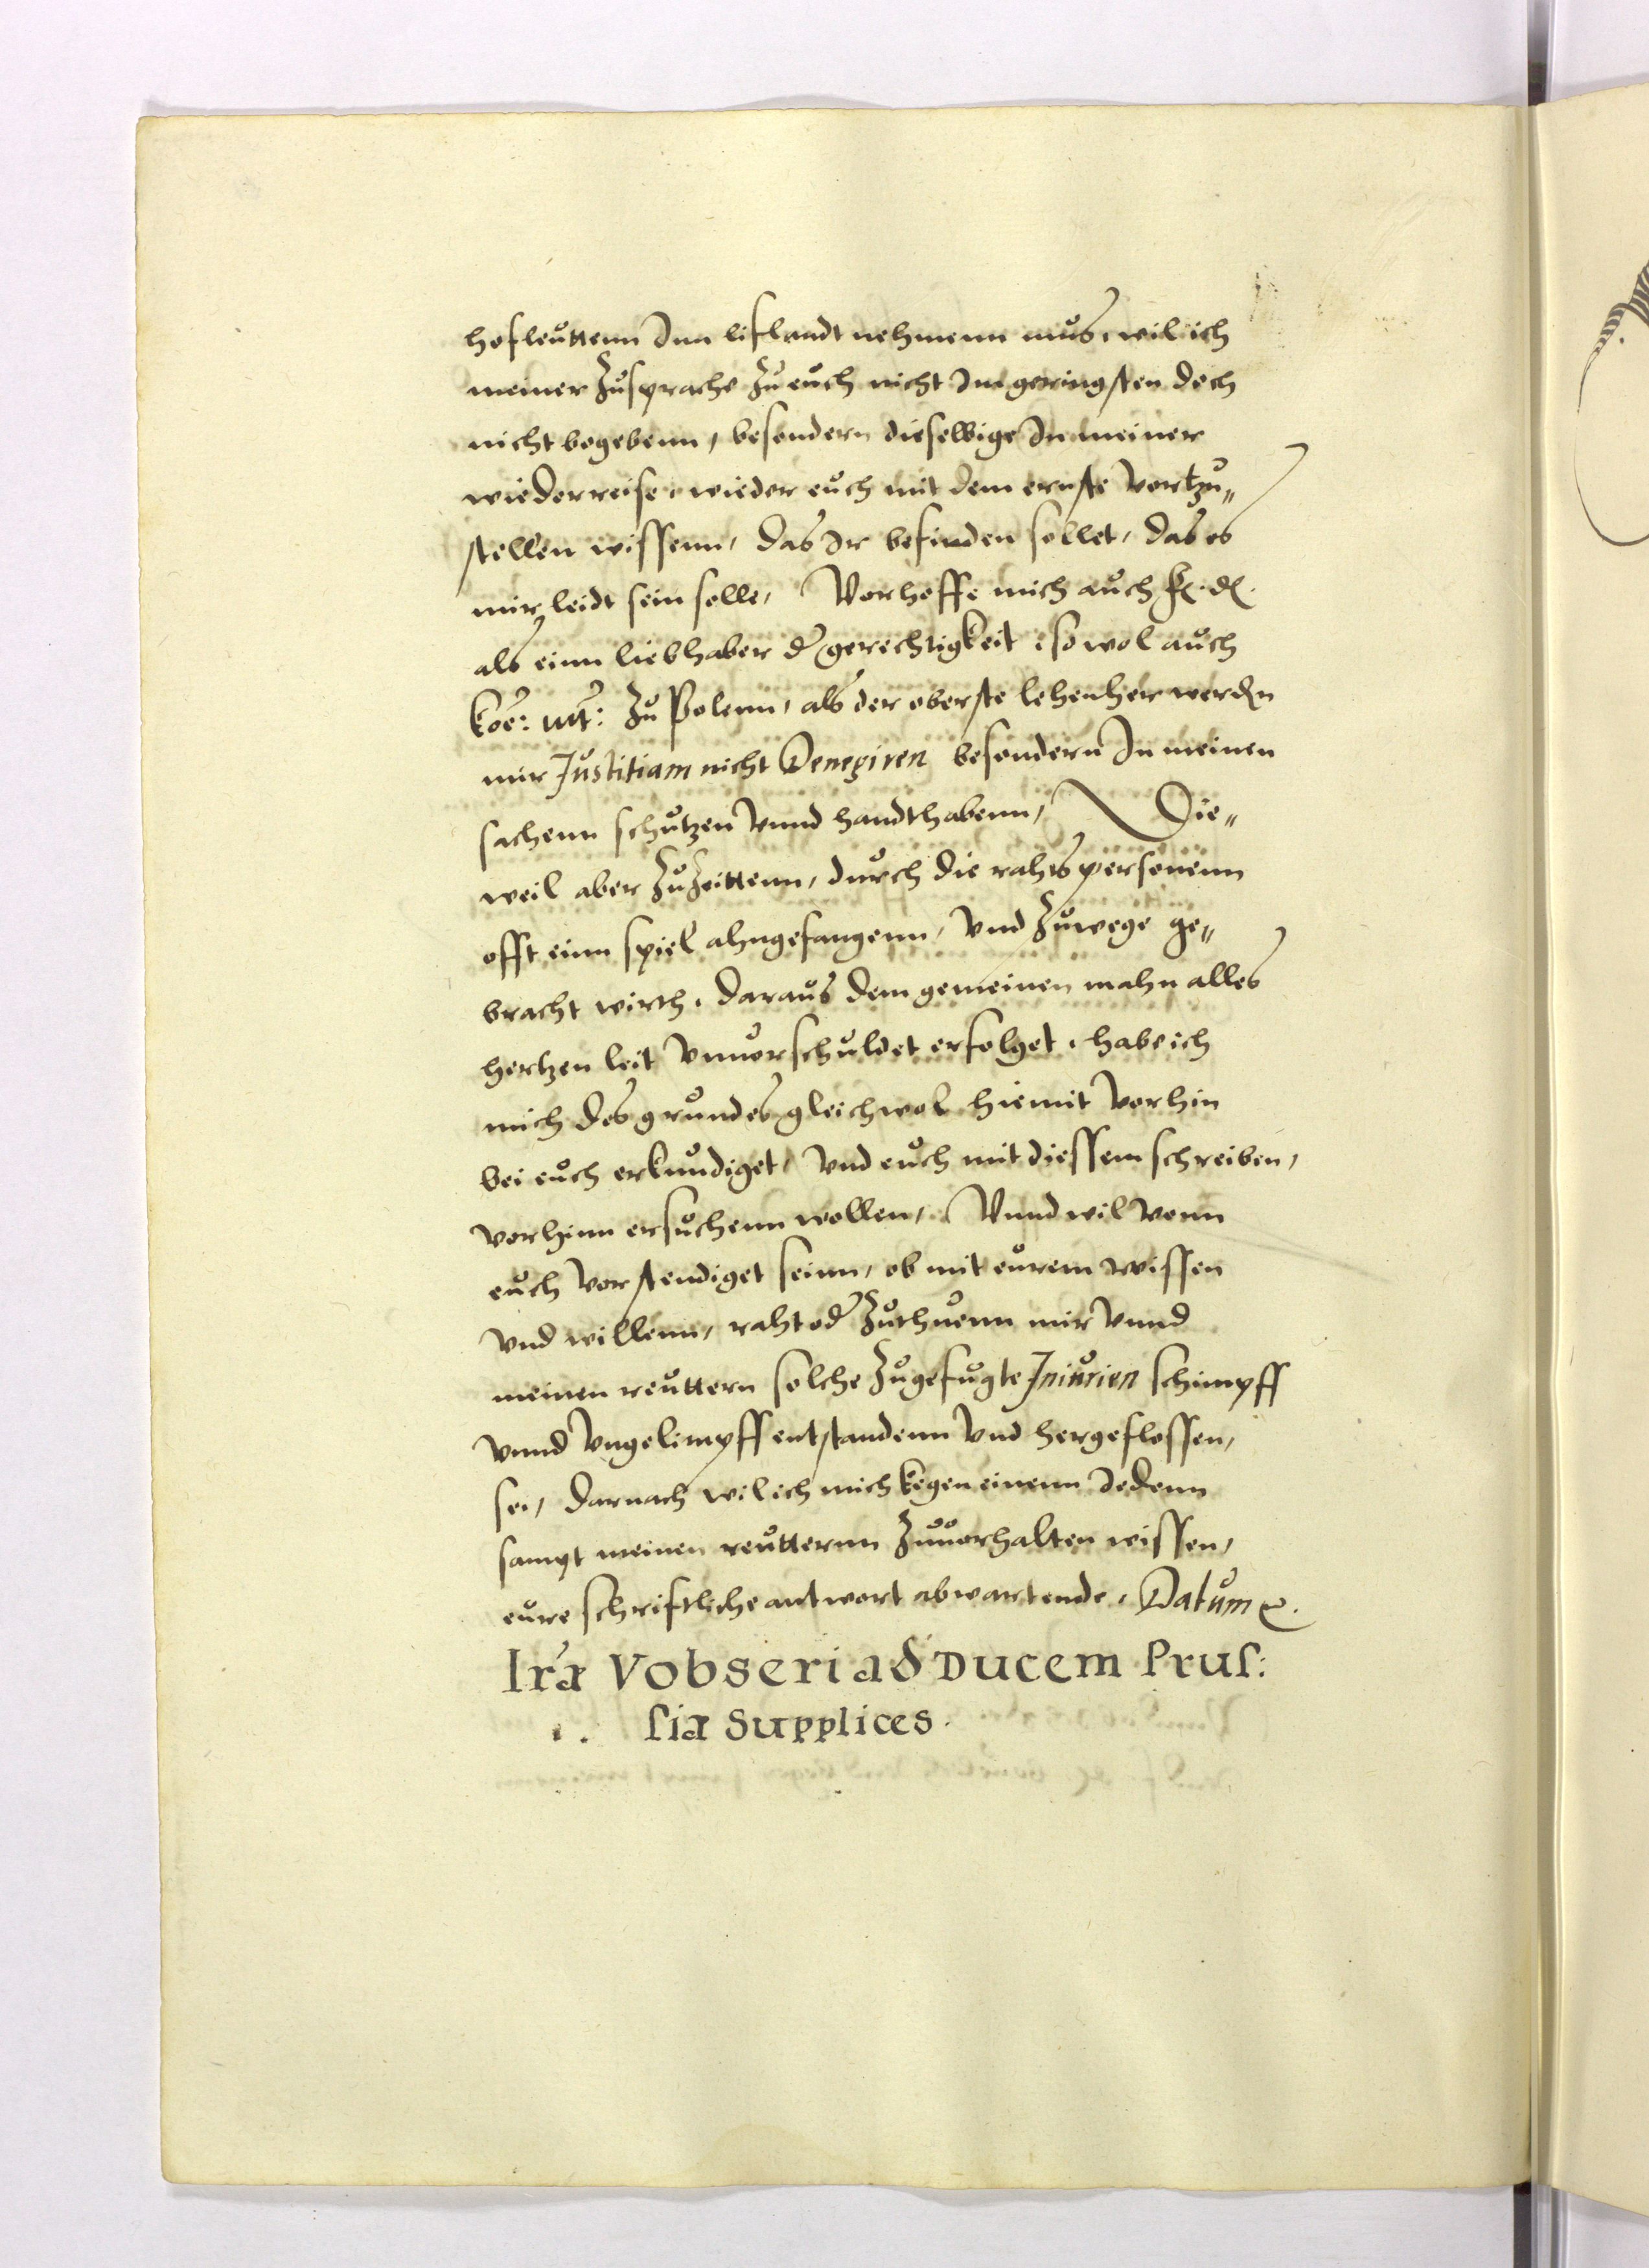 hofleuttenn Inn liflandt nehmenn mus, wil ich
meiner Zusprache Zu euch nicht Im geringsten doch
nicht begebenn, besondern dieselbige In meiner
wiederreise, wieder euch mit dem ernste vortzu„
stellen wissenn, das Ir befinden sollet, das es
mir leidt sein solle, Vorhoffe mich auch f. d.
als einn liebhaber der gerechtigkeit, so wol auch
koe: mt: Zu Polenn, als der oberste lehenher werden
mir Justitiam nicht Denegiren besondern In meinen
sachenn schutzen vnnd handthabenn, Die„
weil aber Zu Zeittenn, durch die rahtspersonenn
offt einn spiel ahngefangenn, vnd Zuwege ge„
bracht wirth, daraus dem gemeinen mahn alles
hertzen leit vnuorschuldet erfolget, habe ich
mich des grundes gleichwol hiemit vorhin
bei euch erkundiget, vnd euch mit diessem schreiben,
vorhinn ersuchenn wollen, Vnnd wil vonn
euch vorstendiget seinn, ob mit eurem wissen
vnd willenn, raht oder Zuthuenn mir vnnd
meinen reuttern solche Zugefugte Iniurien schimpff
vnnd vngelimpff entstandenn vnd hergeflossen,
sei, darnach wil ich mich kegen einenn Jedenn
sampt meinen reutternn Zuuorhalten wissen,
eure schriftliche antwort abwartende, Datum
Iræ Vobseri ad Ducem Prus:
siæ Supplices.